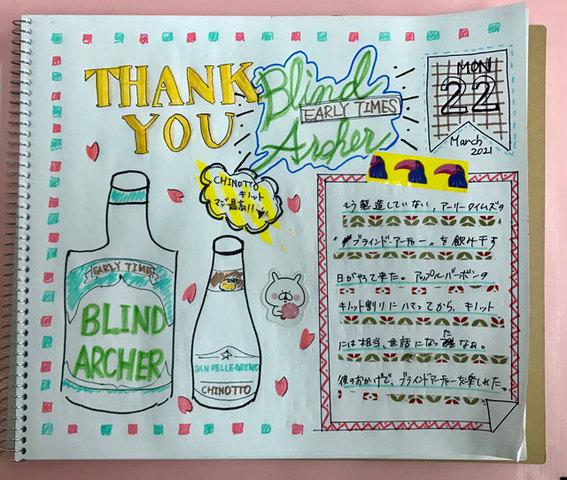 THANK
YOU
Blind
EARLY TIMES
Archer
MON
22
March
2021
CHINOTTO
キノット
マジ最高!!
もう製造していない、アーリータイムズの
"ブラインド・アーチャー"を飲み干す
日がやって来た。アップルバーボンの
キノット割りにハマってから、キノット
には相当、世話になったなぁ。
彼のおかげで、ブラインドアーチャーを楽しめた。
EARLY TIMES
BLIND
ARCHER
SAN PELLEGRINO
CHINOTTO